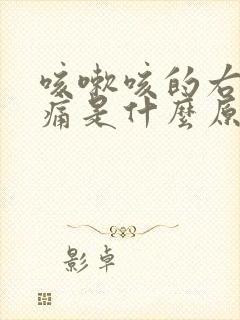 咳嗽咳的右
痛是什麼原
影卓